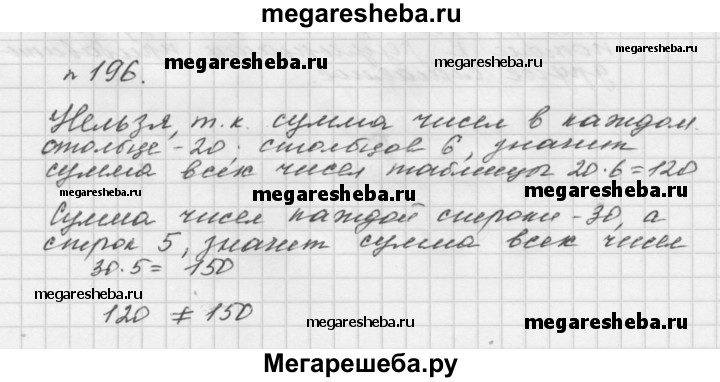 megaresheba.ru
megaresheba.ru
n 196. megaresheba.ru megaresheba.ru
Нельзя, т.к. сумма чисел в каждом
столбце -20; столбцов 6, значит
сумма всех чисел таблицы 20·6=120
megaresheba.ru megaresheba.ru
Сумма чисел каждой строки -30, а
строк 5, значит сумма всех чисел
30·5= 150
megaresheba.ru megaresheba.ru
120 ≠ 150
megaresheba.ru megaresheba.ru
Мегарешеба.ру